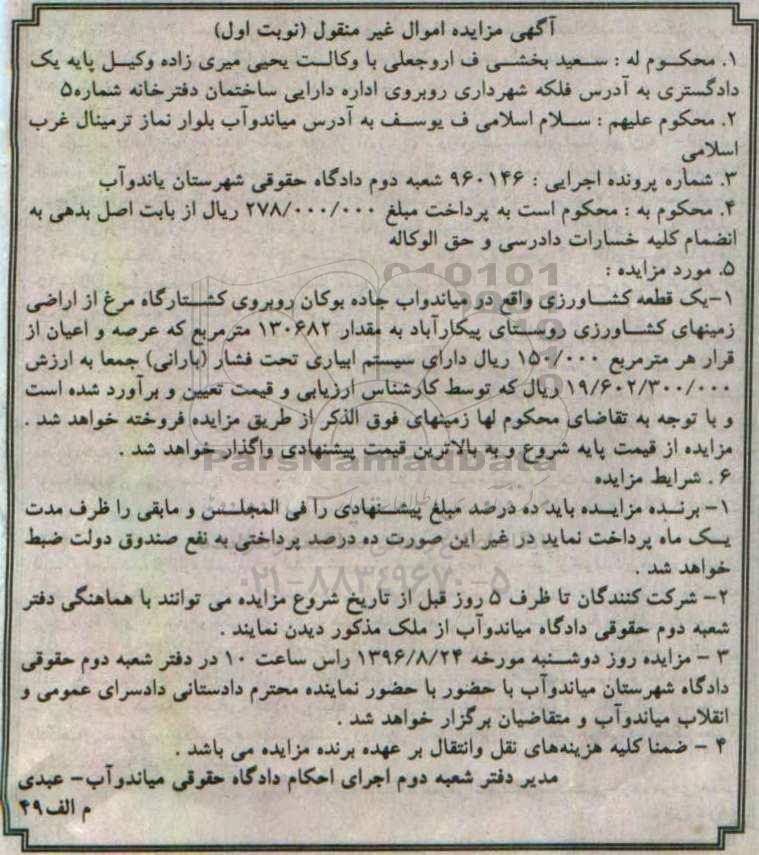 آگهی مزایده اموال غیر منقول (نوبت اول)
۱. محکوم له : سعید بخشی ف اروجعلی با وکالت یحیی میری زاده وکیل پایه یک
دادگستری به آدرس فلکه شهرداری روبروی اداره دارایی ساختمان دفترخانه شماره۵
۲. محکوم علیهم : سلام اسلامی ف یوسف به آدرس میاندوآب بلوار نماز ترمینال غرب
اسلامی
۳. شماره پرونده اجرایی : ۹۶۰۱۴۶ شعبه دوم دادگاه حقوقی شهرستان یاندوآب
۴. محکوم به : محکوم است به پرداخت مبلغ ۲۷۸/۰۰۰/۰۰۰ ریال از بابت اصل بدهی به
انضمام کلیه خسارات دادرسی و حق الوکاله
۵. مورد مزایده :
۱-یک قطعه کشاورزی واقع در میاندواب جاده بوکان روبروی کشتارگاه مرغ از اراضی
زمینهای کشاورزی روستای پیکارآباد به مقدار ۱۳۰۶۸۲ مترمربع که عرصه و اعیان از
قرار هر مترمربع ۱۵۰/۰۰۰ ریال دارای سیستم ابیاری تحت فشار (بارانی) جمعا به ارزش
۱۹/۶۰۲/۳۰۰/۰۰۰ ریال که توسط کارشناس ارزیابی و قیمت تعیین و برآورد شده است
و با توجه به تقاضای محکوم لها زمینهای فوق الذکر از طریق مزایده فروخته خواهد شد .
مزایده از قیمت پایه شروع و به بالاترین قیمت پیشنهادی واگذار خواهد شد .
ParsNamadData
۶ . شرایط مزایده
۱- برنده مزایده باید ده درصد مبلغ پیشنهادی را فی المجلس و مابقی را ظرف مدت
یک ماه پرداخت نماید در غیر این صورت ده درصد پرداختی به نفع صندوق دولت ضبط
خواهد شد .
۰۲۱-۸۸۳۴۹۶۷۰-۵
۲- شرکت کنندگان تا ظرف ۵ روز قبل از تاریخ شروع مزایده می توانند با هماهنگی دفتر
شعبه دوم حقوقی دادگاه میاندوآب از ملک مذکور دیدن نمایند .
۳ - مزایده روز دوشنبه مورخه ۱۳۹۶/۸/۲۴ راس ساعت ۱۰ در دفتر شعبه دوم حقوقی
دادگاه شهرستان میاندوآب با حضور با حضور نماینده محترم دادستانی دادسرای عمومی و
انقلاب میاندوآب و متقاضیان برگزار خواهد شد .
۴ - ضمنا کلیه هزینه‌های نقل وانتقال بر عهده برنده مزایده می باشد .
مدیر دفتر شعبه دوم اجرای احکام دادگاه حقوقی میاندوآب- عبدی
م الف۴۹